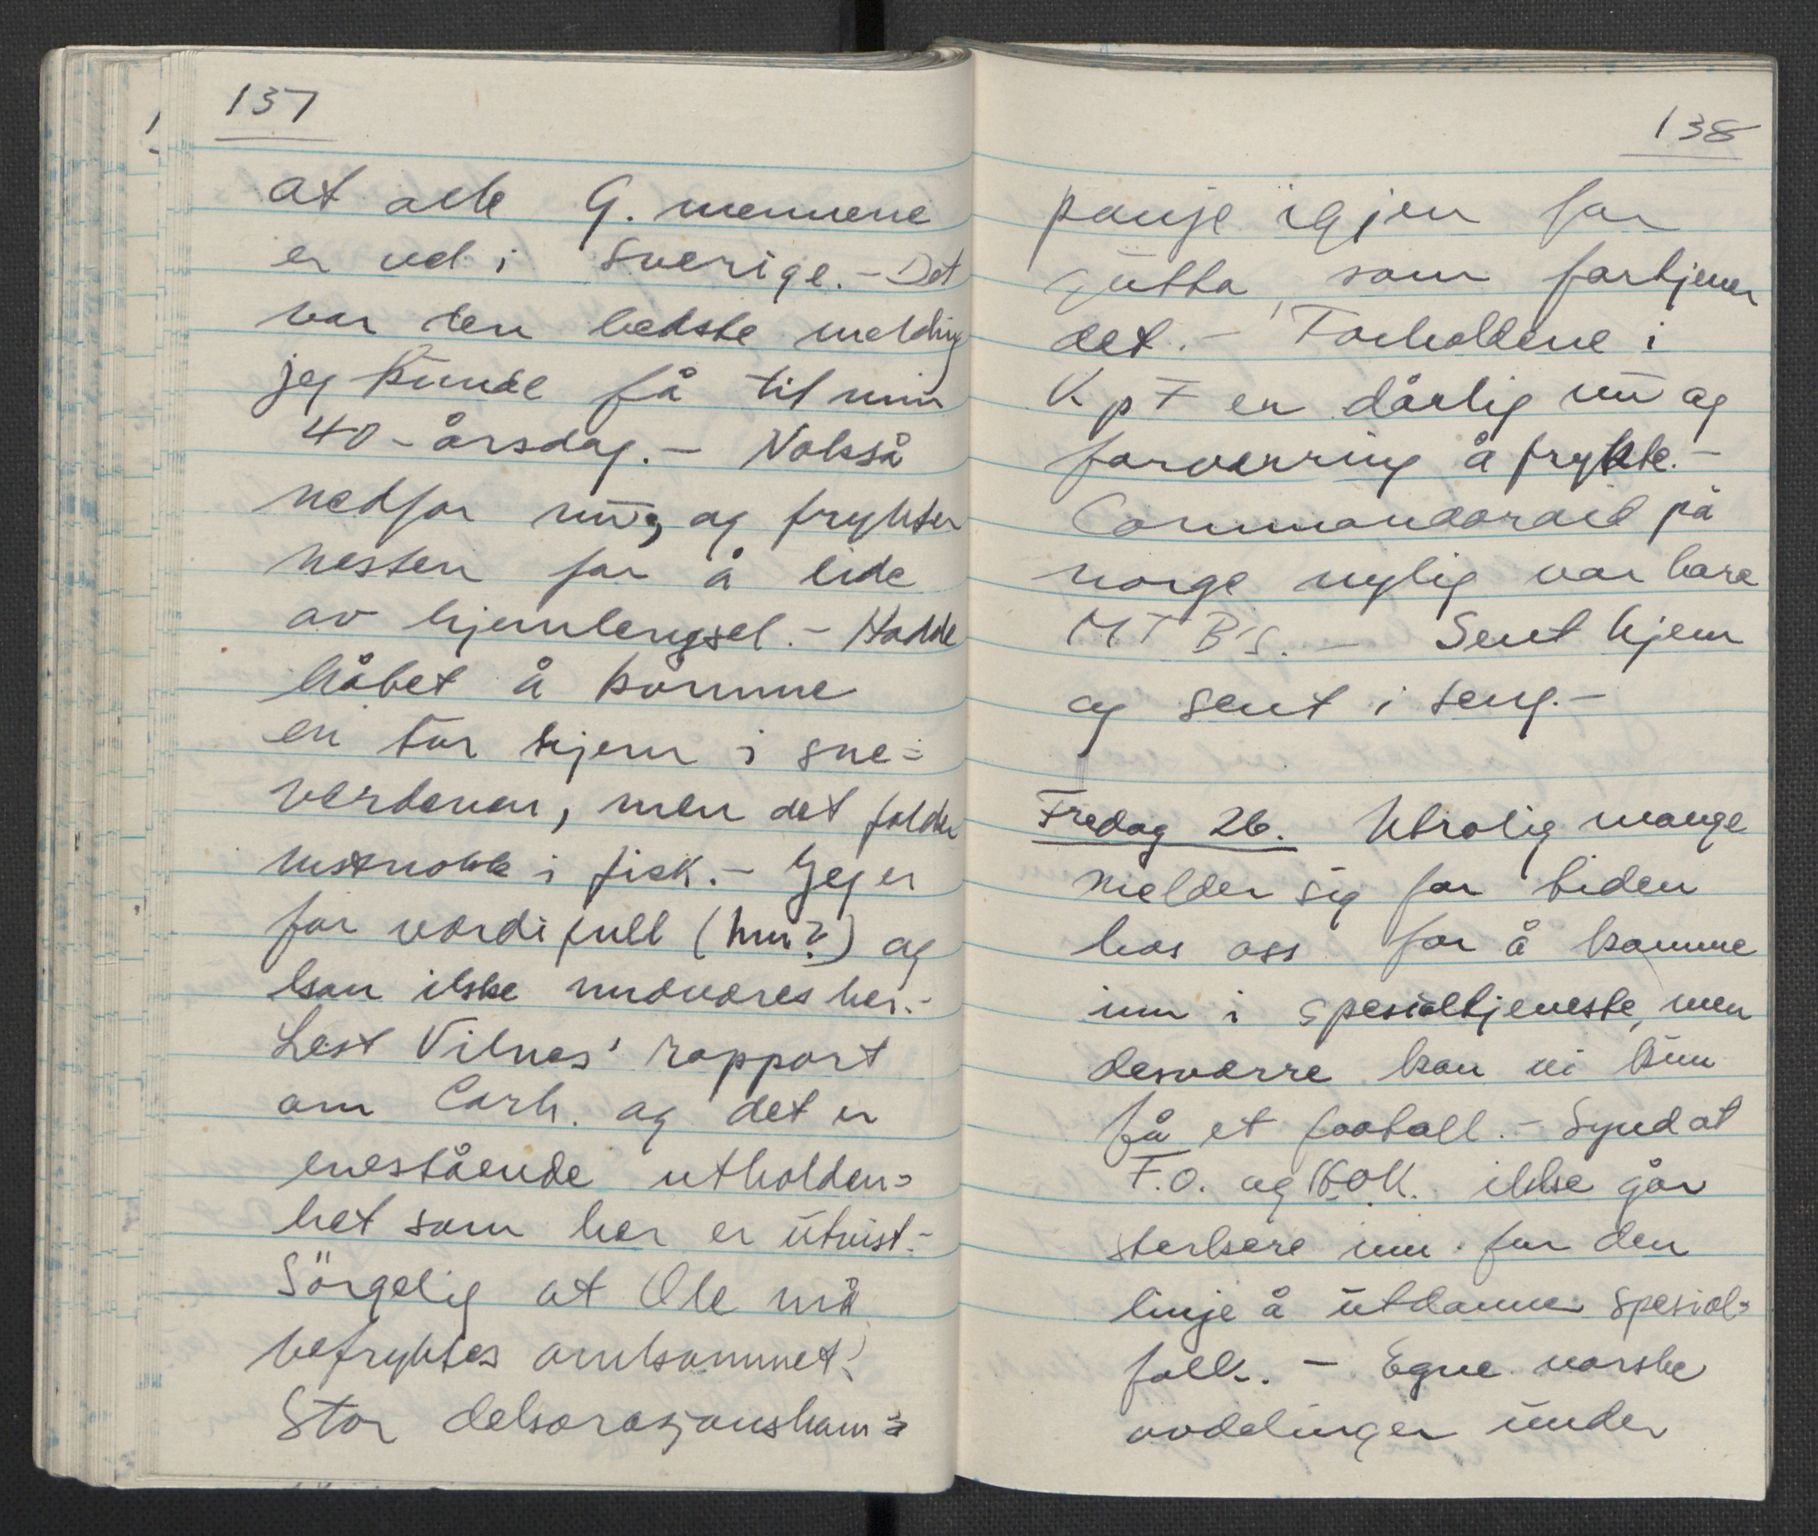 137
at alle G. mennene
er vel i Sverige. - Det
var den bedste melding
jeg kunde få til min
40-årsdag. - Nokså
nedfor nu, og frykter
nesten for å lide
av hjemlengsel. - Hadde
håbet å komme
en tur hjem i sne=
verdenen, men det falder
nok i fisk. - Jeg er
for værdifull (hm?) og
kan ikke undværes her. -
Lest Vilnes' rapport
om Carh. og det er
enestående utholden=
het som her er utvist. -
Sörgelig at Ole må
befryktes omkommet.
Stor dekorasjonskam=
138
panje igjen for
gutta, som fortjener
det. - Forholdene i
K p F er dårlig nu og
forverring å frykte. -
Commandoraid på
norge nylig var bare
MTB's. - Sent hjem
og sent i seng. -
Fredag 26. Utrolig mange
melder sig for tiden
hos oss for å komme
inn i spesialtjeneste, men
desværre kan vi kun
få et fåtall. - Synd at
F.O. og FOK. ikke går
sterkere inn for den
linje å utdanne spesial=
folk. - Egne norske
avdelinger under